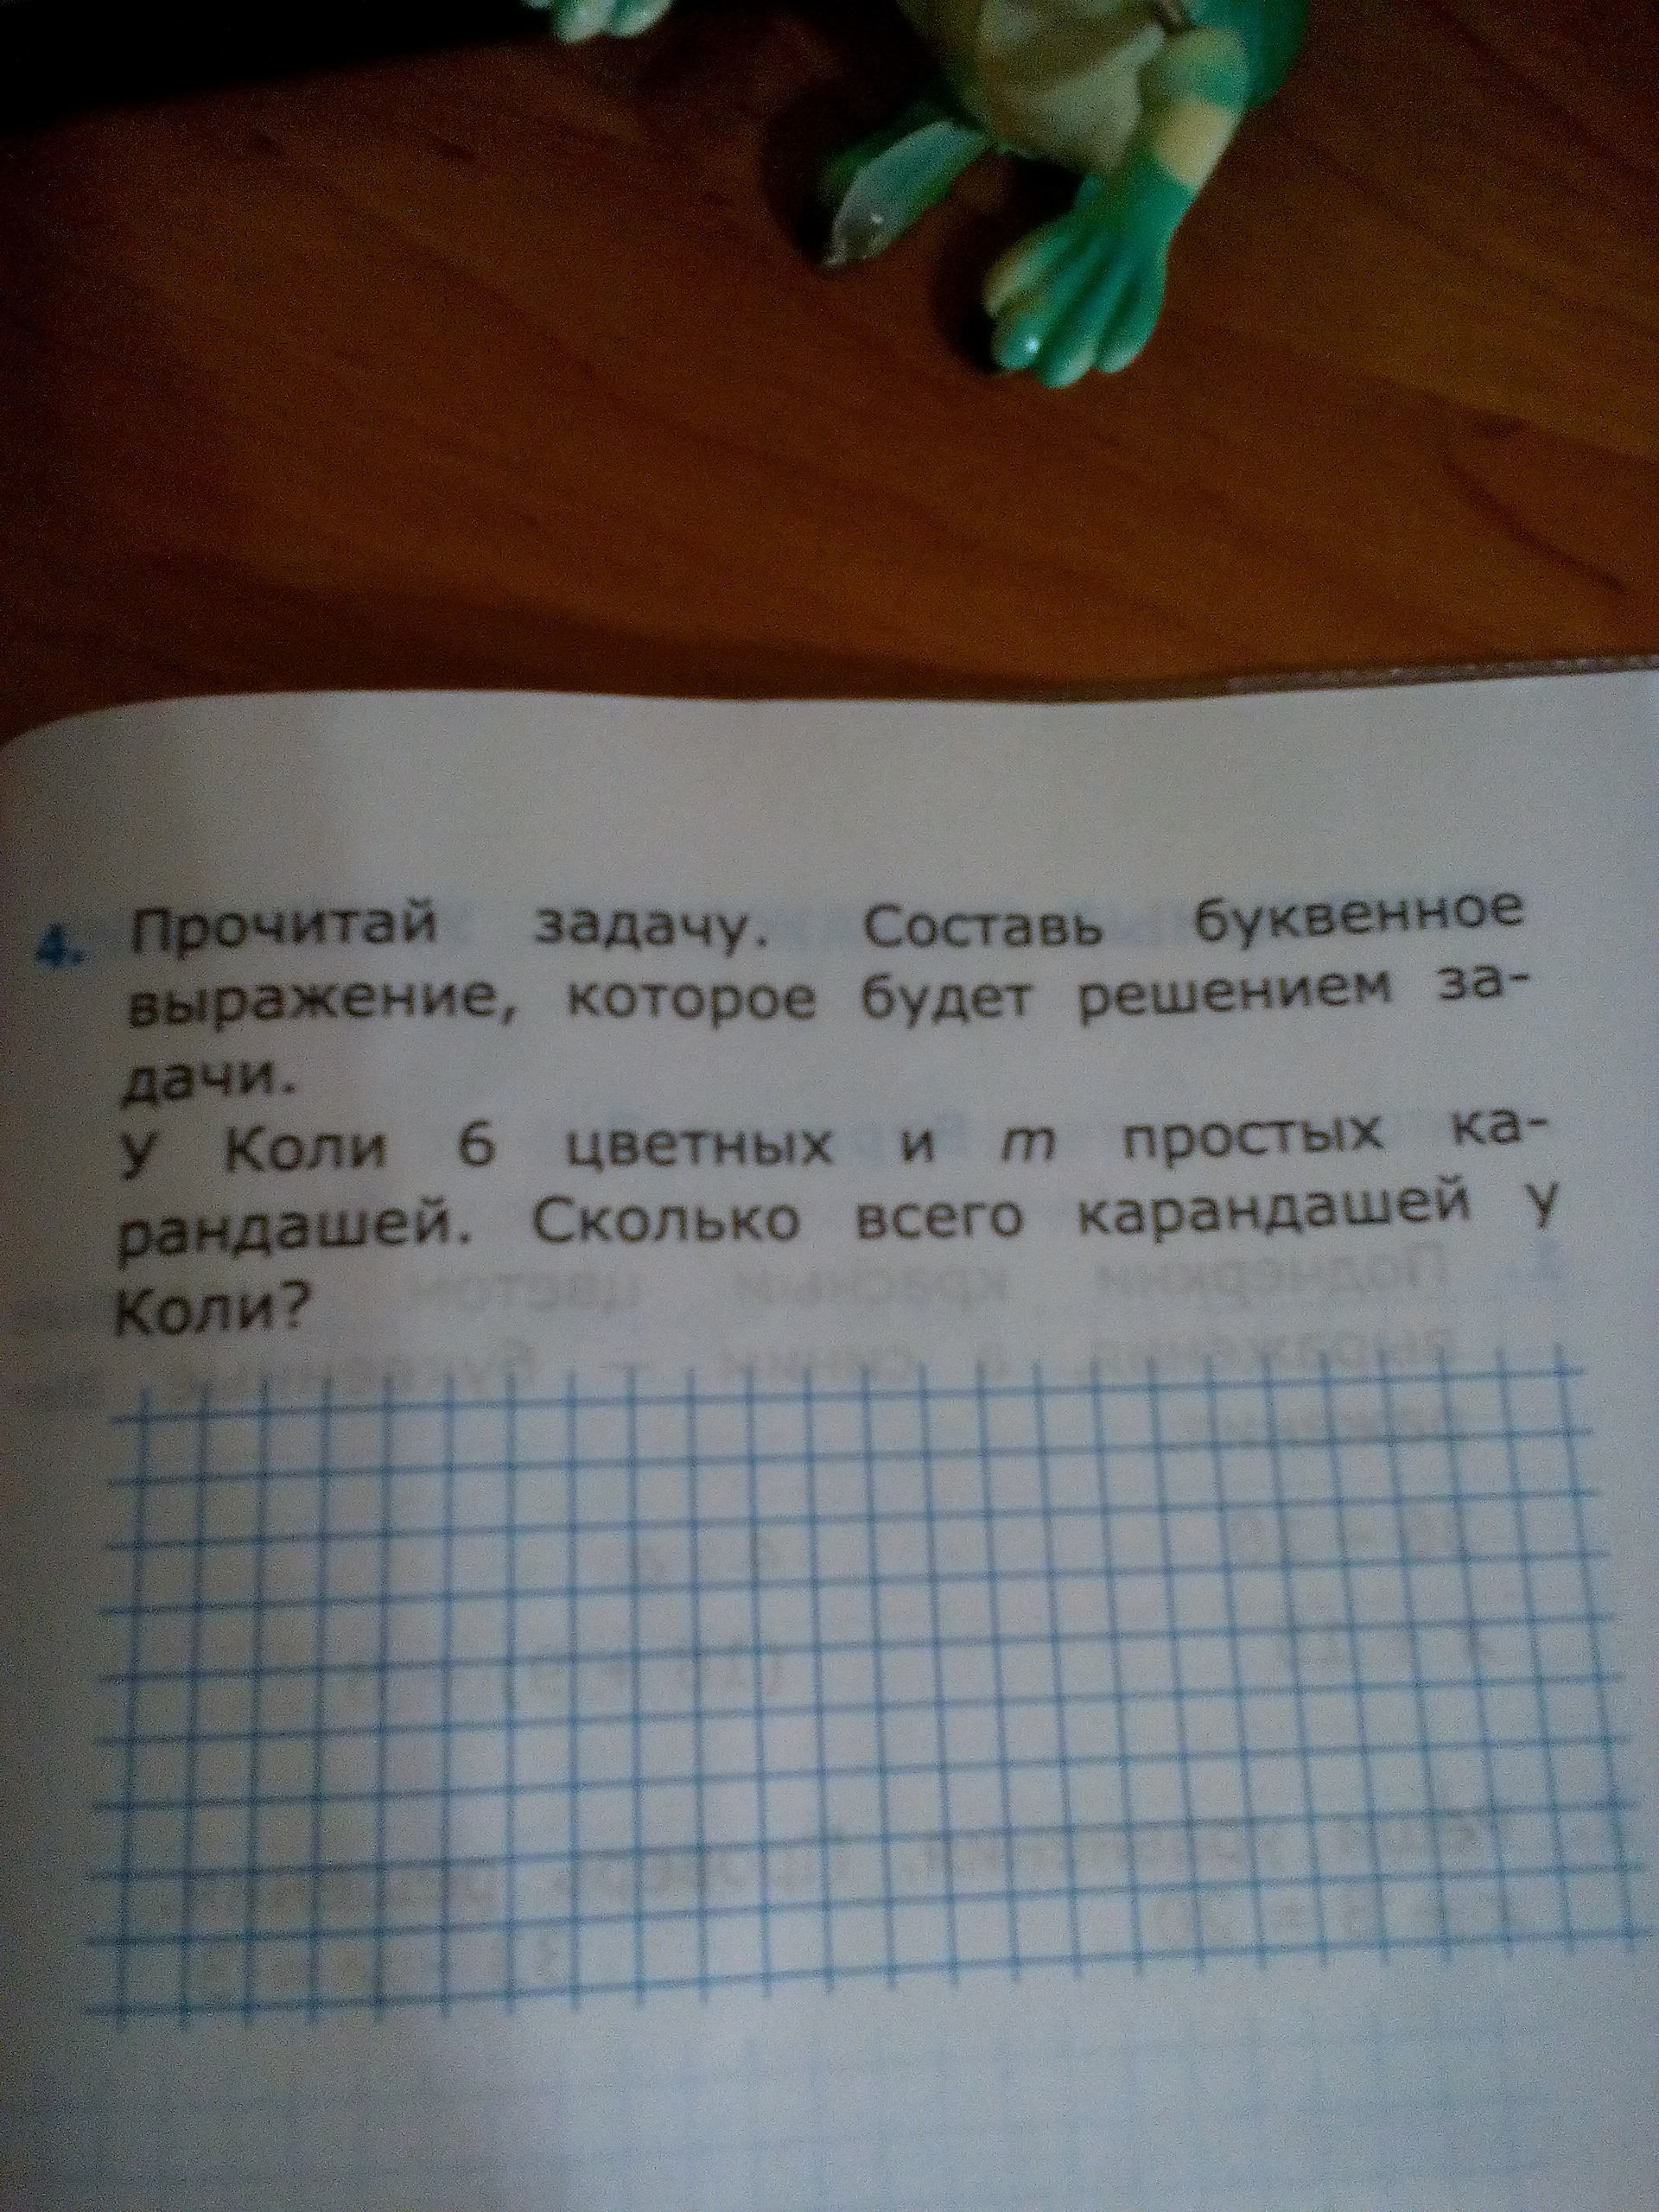 4. Прочитай задачу. Составь буквенное
выражение, которое будет решением за-
дачи.
У Коли 6 цветных и m простых ка-
рандашей. Сколько всего карандашей у
Коли?